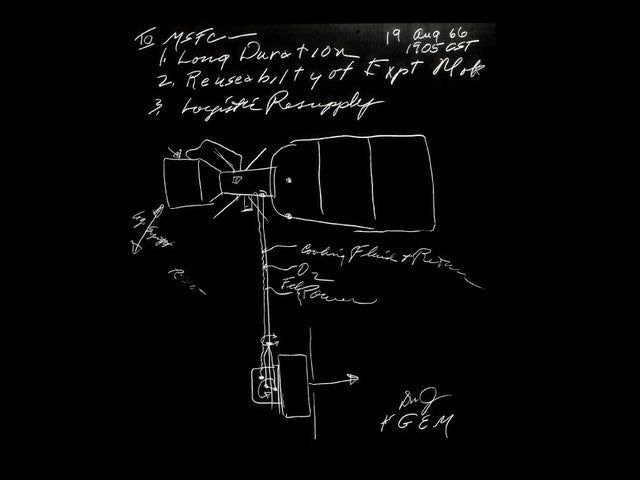 To MSFC
19 Aug 66
1905 CST
1. Long Duration
2. Reuseability of Expt Mod
3. Logistic Resupply
Cooling Fluid & Return
O2
Power
GEM